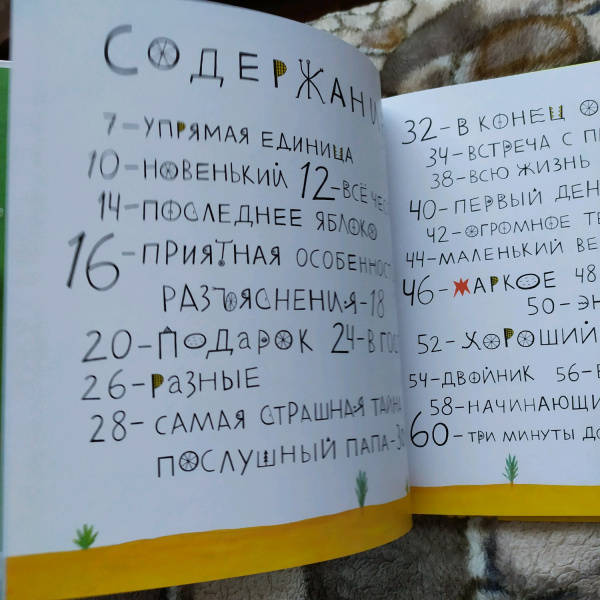 СОДЕРЖАНИ
7-УПРЯМАЯ ЕДИНИЦА
10-НОВЕНЬКИЙ 12-ВСЁ ЧЕС
14-ПОСЛЕДНЕЕ ЯБЛОКО
16-ПРИЯТНАЯ ОСОБЕННОСТ
РАЗЪЯСНЕНИЯ-18
20-ПОДАРОК 24-В ГОС
26-РАЗНЫЕ
28-САМАЯ СТРАШНАЯ ТАЙНА
ПОСЛУШНЫЙ ПАПА-30
32-В КОНЕЦ О
34-ВСТРЕЧА С П
38-ВСЮ ЖИЗНЬ
40-ПЕРВЫЙ ДЕН
42-ОГРОМНОЕ ТЕ
44-МАЛЕНЬКИЙ ВЕ
46-ЖАРКОЕ 48
50-ЭН
52-ХОРОШИЙ
54-ДВОЙНИК 56-В
58-НАЧИНАЮЩИ
60-ТРИ МИНУТЫ ДО